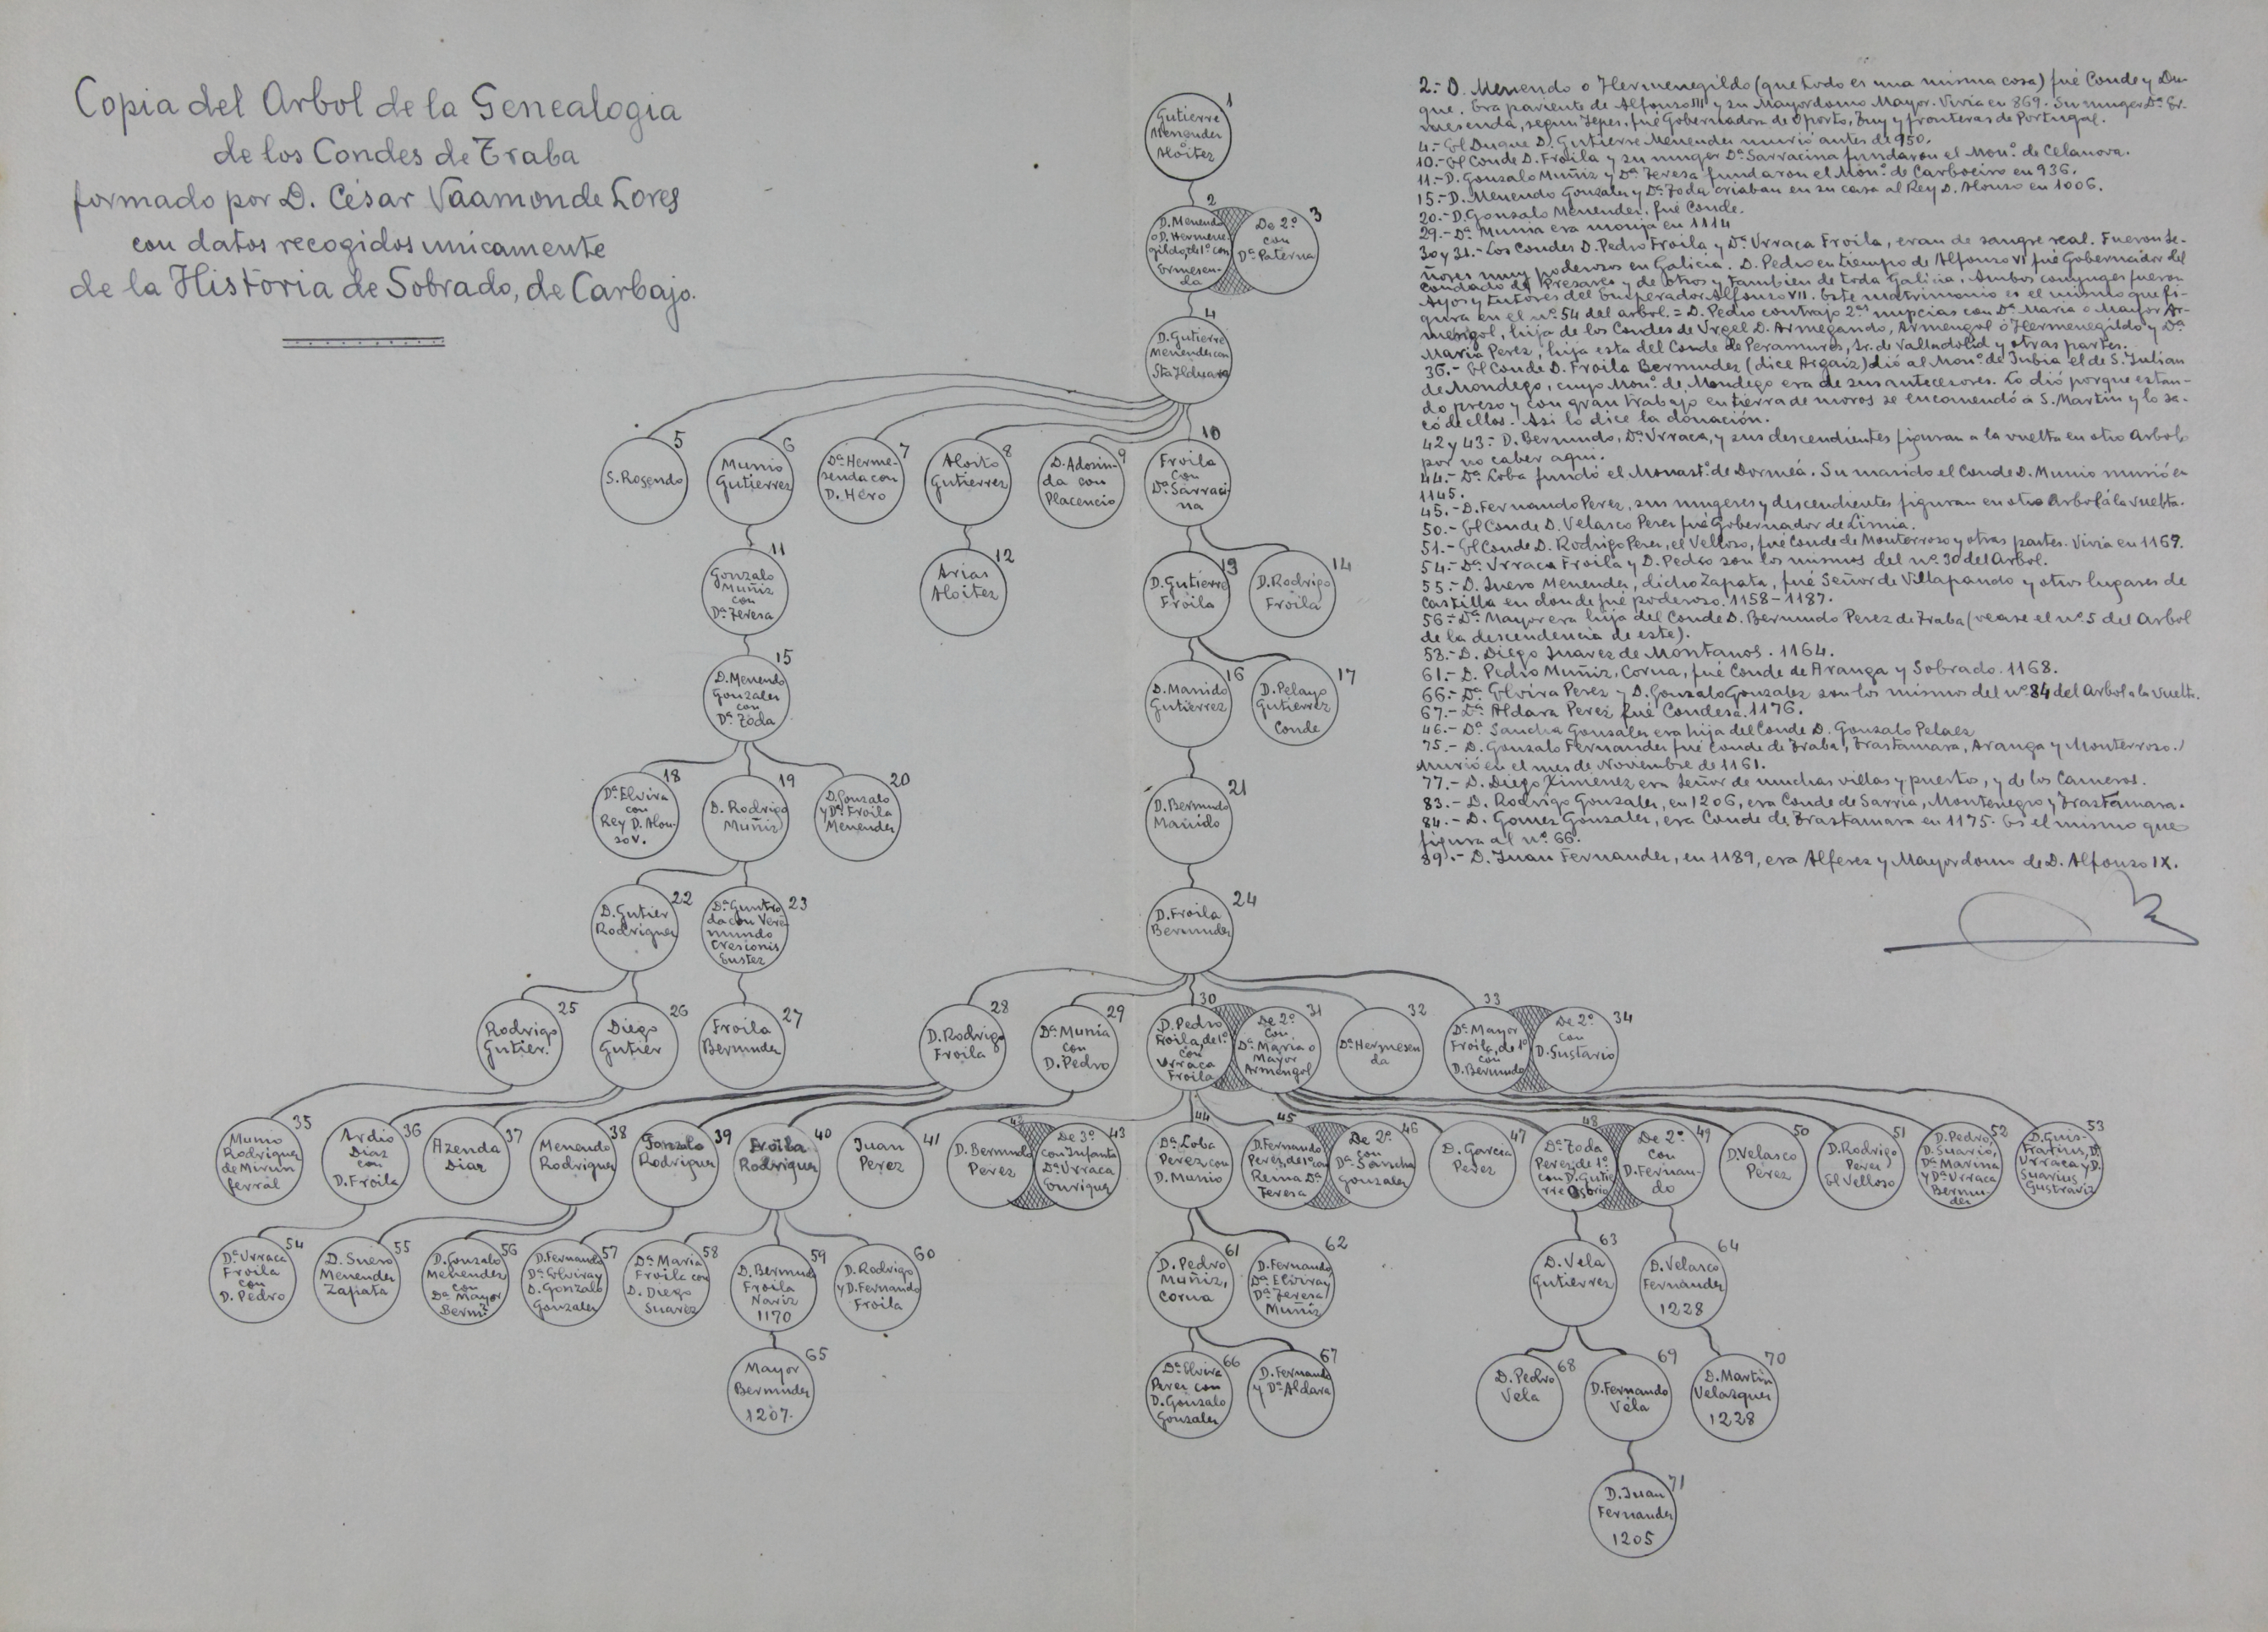 Copia del Arbol de la Genealogia
de los Condes de Traba
formado por D. César Vaamonde Lores
con datos recogidos unicamente
de la Historia de Sobrado, de Carbajo.
2.- D. Menendo o Hermenegildo (que todo es una misma cosa) fué Conde y Du-
que. Era pariente de Alfonso III y su Mayordomo Mayor. Vivia en 869. Su muger Dª Er-
mesenda, segun Yepes, fué Gobernadora de Oporto, Tuy y fronteras de Portugal.
4.- El Duque D. Gutierre Menendez murió antes de 950.
10.- El Conde D. Froila y su muger Dª Sarracina fundaron el Monº. de Celanova.
11.- D. Gonzalo Muñiz y Dª Teresa fundaron el Monº. de Carboeiro en 936.
15.- D. Menendo Gonzalez y Dª Toda criaban en su casa al Rey D. Alonso en 1006.
20.- D. Gonzalo Menendez. fué Conde.
29.- Dª Munia era monja en 1114
30 y 31.- Los Condes D. Pedro Froila y Dª Urraca Froila, eran de sangre real. Fueron Se-
ñores muy poderosos en Galicia. D. Pedro en tiempo de Alfonso VI fué Gobernador del
condado de Presares y de otros y tambien de toda Galicia. Ambos conyuges fueron
Ayos y tutores del Emperador Alfonso VII. Este matrimonio es el mismo que fi-
gura en el nº. 54 del arbol. = D. Pedro contrajo 2as nupcias con Dª Maria o Mayor Ar-
mengol, hija de los Condes de Urgel D. Armegando, Armengol ó Hermenegildo y Dª
Maria Perez, hija esta del Conde de Peramures, Sr. de Valladolid y otras partes.
36.- El Conde D. Froila Bermudez (dice Argaiz) dió al Monº. de Jubia el de S. Julian
de Mondego, cuyo Monº. de Mondego era de sus antecesores. Lo dió porque estan-
do preso y con gran trabajo en tierra de moros se encomendó a S. Martin y lo sa-
có de ellos. Asi lo dice la donación.
42 y 43.- D. Bermudo, Dª Urraca, y sus descendientes figuran a la vuelta en otro Arbol
por no caber aqui.
44.- Dª Loba fundó el Monastº de Dormeá. Su marido el Conde D. Munio murió en
1145.
45.- D. Fernando Perez, sus mugeres y descendientes figuran en otro Arbol á la vuelta.
50.- El Conde D. Velasco Perez fué Gobernador de Limia.
51.- El Conde D. Rodrigo Perez, el Velloso, fué Conde de Monterroso y otras partes. Vivia en 1169.
54.- Dª Urraca Froila y D. Pedro son los mismos del nº. 30 del Arbol.
55.- D. Suero Menendez, dicho Zapata, fué Señor de Villapando y otros lugares de
Castilla en donde fué poderoso. 1158-1187.
56.- Dª Mayor era hija del Conde D. Bermudo Perez de Traba (vease el nº. 5 del Arbol
de la descendencia de este).
58.- D. Diego Suarez de Montanos. 1164.
61.- D. Pedro Muñiz, Corna, fué Conde de Aranga y Sobrado. 1168.
66.- Dª Elvira Perez y D. Gonzalo Gonzalez son los mismos del nº 84 del Arbol a la vuelta.
67.- Dª Aldara Perez fué Condesa. 1176.
46.- Dª Sancha Gonzalez era hija del Conde D. Gonzalo Pelaez
75.- D. Gonzalo Fernandez fué Conde de Traba, Trastamara, Aranga y Monterroso.
Murió en el mes de Noviembre de 1161.
77.- D. Diego Ximenez era Señor de muchas villas y puerto, y de los Cameros.
83.- D. Rodrigo Gonzalez, en 1206, era Conde de Sarria, Montenegro y Trastamara.
84.- D. Gomez Gonzalez, era Conde de Trastamara en 1175. Es el mismo que
figura al nº 66.
89.- D. Juan Fernandez, en 1189, era Alferez y Mayordomo de D. Alfonso IX.
1
Gutierre
Menendez
Aloitez
2
D. Menendo
o D. Hermene-
gildo, de 1º con
Ermesen-
da
3
De 2º
con
Dª Paterna
4
D. Gutierre
Menendez con
Sta Ilduara
5
S. Rosendo
6
Munio
Gutierrez
7
Dª Herme-
senda con
D. Hero
8
Aloito
Gutierrez
9
D. Adosin-
da con
Placencio
10
Froila
con
Dª Sarraci-
na
11
Gonzalo
Muñiz
con
Dª Teresa
12
Arias
Aloitez
13
D. Gutierre
Froila
14
D. Rodrigo
Froila
15
D. Menendo
Gonzalez
con
Dª Toda
16
D. Manido
Gutierrez
17
D. Pelayo
Gutierrez
Conde
18
Dª Elvira
con
Rey D. Alon-
so V.
19
D. Rodrigo
Muñiz
20
D. Gonzalo
y Dª Froila
Menendez
21
D. Bermudo
Manido
22
D. Gutier
Rodriguez
23
Dª Guntro
da con Vere-
mundo
Cresconis
Suster
24
D. Froila
Bermudez
25
Rodrigo
Gutier.
26
Diego
Gutier
27
Froila
Bermudez
28
D. Rodrigo
Froila
29
Dª Munia
con
D. Pedro
30
D. Pedro
Froila, de 1º
con
Urraca
Froila
31
De 2º
con
Dª Maria o
Mayor
Armengol
32
Dª Hermesen
da
33
Dª Mayor
Froila, de 1º
con
D. Bermudo
34
De 2º
con
D. Gustario
35
Munio
Rodriguez
de Mirun
ferral
36
Ardio
Diaz
con
D. Froila
37
Azenda
Diaz
38
Menendo
Rodriguez
39
Gonzalo
Rodriguez
40
Froila
Rodriguez
41
Juan
Perez
42
D. Bermudo
Perez
43
De 3º
con Infanta
Dª Urraca
Enriquez
44
Dª Loba
Perez con
D. Munio
45
D. Fernando
Perez, de 1º con
Reina Dª
Teresa
46
De 2º
con
Dª Sancha
Gonzalez
47
D. Garcia
Perez
48
Dª Toda
Perez de 1º
con D. Gutie
rre Osorio
49
De 2º
con
D. Fernan-
do
50
D. Velasco
Pérez
51
D. Rodrigo
Perez
El Velloso
52
D. Pedro,
D. Suario,
Dª Marina
y Dª Urraca
Bermu-
dez
53
D. Guis-
Fratinis, D.
Urraca y D.
Suarius
Gustraviz
54
Dª Urraca
Froila
con
D. Pedro
55
D. Suero
Menendez
Zapata
56
D. Gonzalo
Menendez
con
Dª Mayor
Bermz
57
D. Fernando
Dª Elvira y
D. Gonzalo
Gonzalez
58
Dª Maria
Froila con
D. Diego
Suarez
59
D. Bermudo
Froila
Nariz
1170
60
D. Rodrigo
y D. Fernando
Froila
61
D. Pedro
Muñiz,
Corna
62
D. Fernando,
Dª Elvira y
Dª Teresa
Muñiz
63
D. Vela
Gutierrez
64
D. Velasco
Fernandez
1228
65
Mayor
Bermudez
1207.
66
Dª Elvira
Perez con
D. Gonzalo
Gonzalez
67
D. Fernando
y Dª Aldara
68
D. Pedro
Vela
69
D. Fernando
Vela
70
D. Martin
Velazquez
1228
71
D. Juan
Fernandez
1205